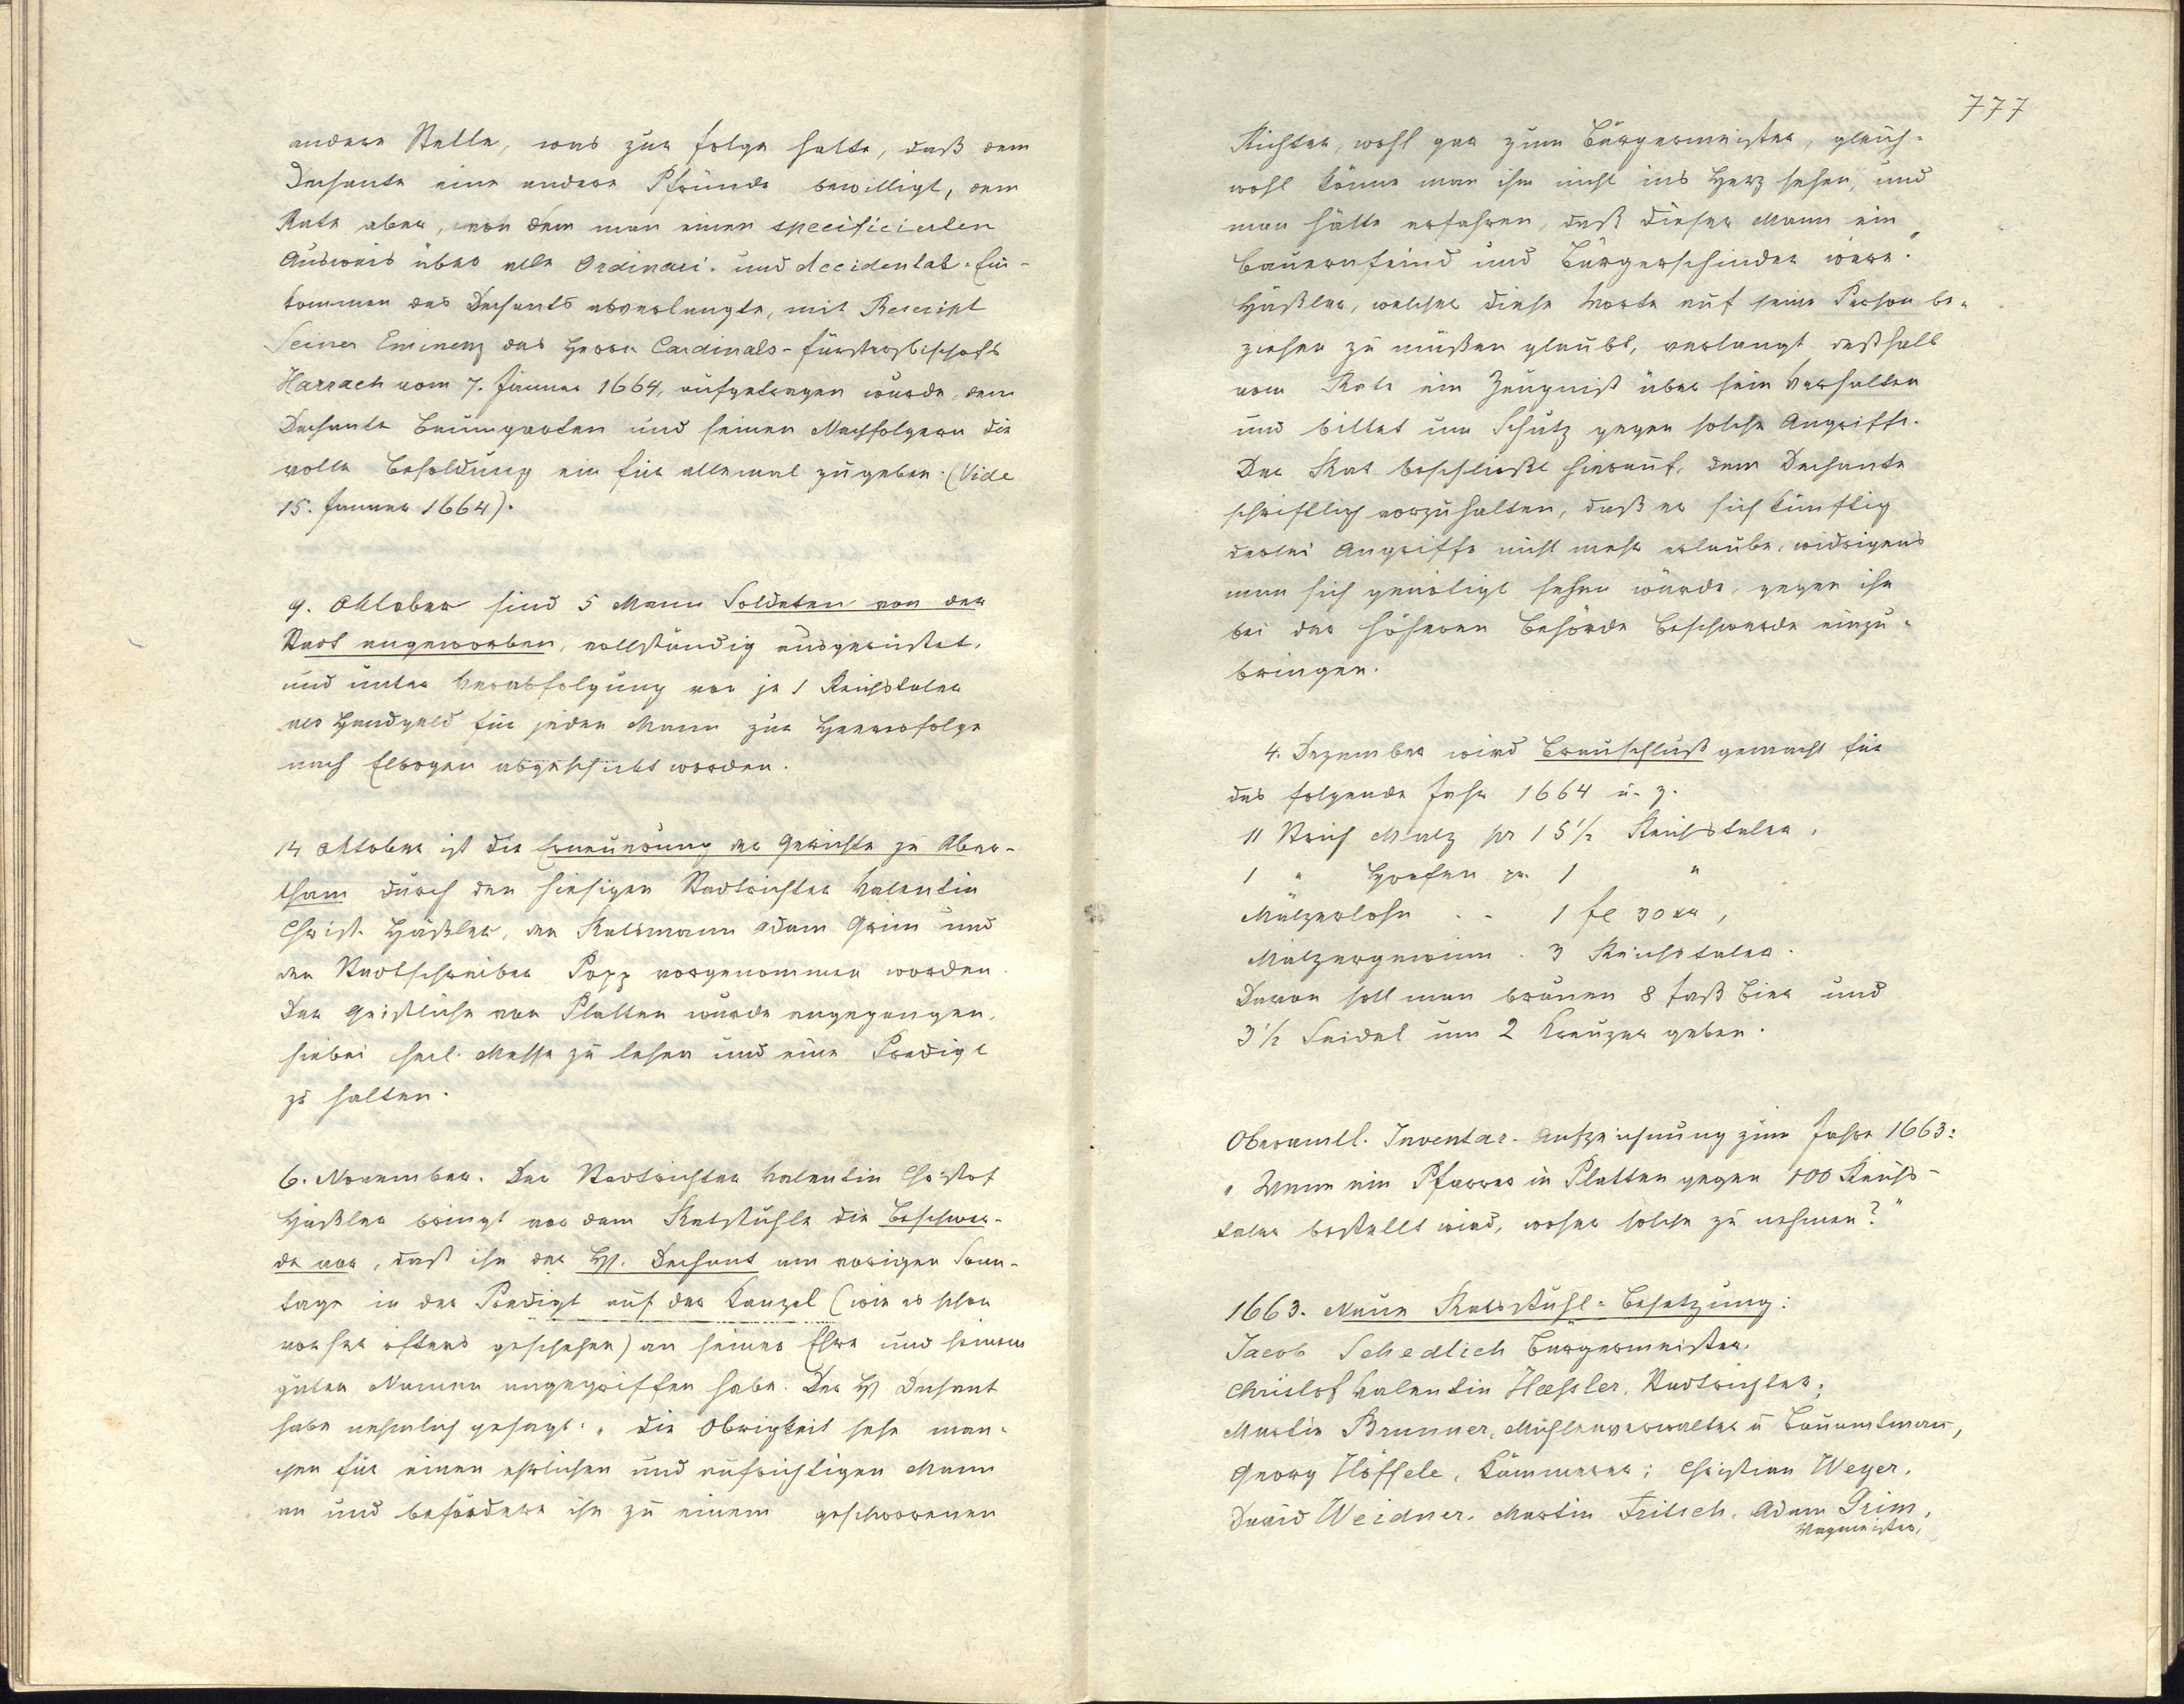 andere Stelle, was zur Folge hatte, daß dem
Dechante eine andere Pfründe bewilligt, dem
Rate aber, von dem man einen specificierten
Ausweis über alle Ordinari- und Accidental-Ein-
kommen des Dechants abverlangte, mit Rescript
Seiner Eminenz des Herrn Cardinals-Fürsterzbischofs
Harrach vom 7. Jänner 1664, aufgetragen wurde, dem
Dechante Baumgarten und seinen Nachfolgern die
volle Besoldung ein für allemal zugeben. (Vide
15. Jänner 1664).
9. Oktober sind 5 Mann Soldaten von der
Stadt angeworben, vollständig ausgerüstet,
und unter Verabfolgung von je 1 Reichstaler
als Handgeld für jeden Mann zur Heeresfolge
nach Elbogen abgeschickt worden.
14 Oktober ist die Erneuerung der Gerichte zu Aber-
tham durch den hiesigen Stadtrichter Valentin
Christ. Häßler, den Ratsmann Adam Grim und
den Stadtschreiber Popp vorgenommen worden.
Der Geistliche von Platten wurde angegangen,
hiebei heil. Messe zu lesen und eine Predigt
zu halten.
6. November. Der Stadtrichter Valentin Christof
Häßler bringt vor dem Ratstuhle die Beschwer-
de vor, daß ihn der H. Dechant am vorigen Sonn-
tage in der Predigt auf der Kanzel (wie es schon
vorher öfters geschehen) an seiner Ehre und seinem
guten Namen angegriffen habe. Der H Dechant
habe nehmlich gesagt: „die Obrigkeit sehe man-
chen für einen ehrlichen und aufrichtigen Mann
an und befördere ihn zu einem geschworenen
777
Richter, wohl gar zum Bürgermeister, gleich-
wohl könne man ihm nicht ins Herz sehen, und
man hätte erfahren, daß dieser Mann ein
Bauernfeind und Bürgerschinder wäre."
Häßler, welcher diese Worte auf seine Person be-
ziehen zu müßen glaubt, verlangt deßhalb
vom Rate ein Zeugniß über sein Verhalten
und bittet um Schutz gegen solche Angriffe.
Der Rat beschließt hierauf, dem Dechante
schriftlich vorzuhalten, daß er sich künftig
derlei Angriffe nicht mehr erlaube, widrigens
man sich genötigt sehen würde, gegen ihn
bei der höheren Behörde Beschwerde einzu-
bringen.
4. Dezember wird Brauschluß gemacht für
das folgende Jahr 1664 u. z.
11 Strich Malz pr 15½ Reichstaler,
1 " Hopfen pr. 1 "
Mälzerlohn . . 1 fl 30 xr,
Mälzergewinn . 3 Reichstaler.
Davon soll man brauen 8 Faß Bier und
3½ Seidel um 2 Kreuzer geben.
Oberamtl. Inventar-Aufzeichnung zum Jahre 1663:
„Wenn ein Pfarrer in Platten gegen 100 Reichs-
taler bestellt wird, woher solche zu nehmen?"
1663. Neue Ratsstuhl-Besetzung:
Jacob Schedlich Bürgermeister,
Christof Valentin Haessler, Stadtrichter;
Martin Brunner, Mühlenverwalter u Bauamtmann,
Georg Höffele, Kämmerer; Christian Weyer,
David Weidner, Martin Fritsch, Adam Grim,
Wagmeister,